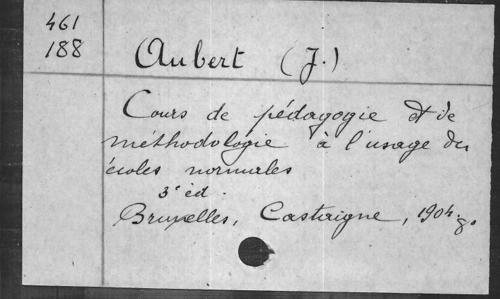 461
188
Aubert (J.)
Cours de pédagogie et de
méthodologie à l'usage des
écoles normales
3e éd.
Bruxelles, Castaigne, 1904. 8o